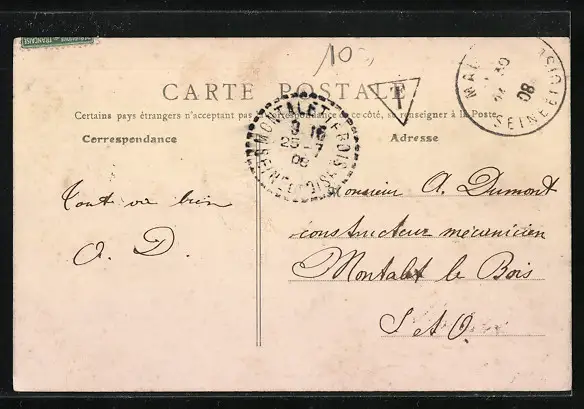 10
CARTE POSTALE
Certains pays étrangers n'acceptant pas la correspondance de ce côté, se renseigner à la Poste
Correspondance
Adresse
T
MONTALET-LE-BOIS
9 15
25 -7
08
SEINE-ET-OISE
30
08
SEINE ET OISE
Tout va bien
A. D.
Monsieur A. Dumont
constructeur mécanicien
Montalet le Bois
S et O